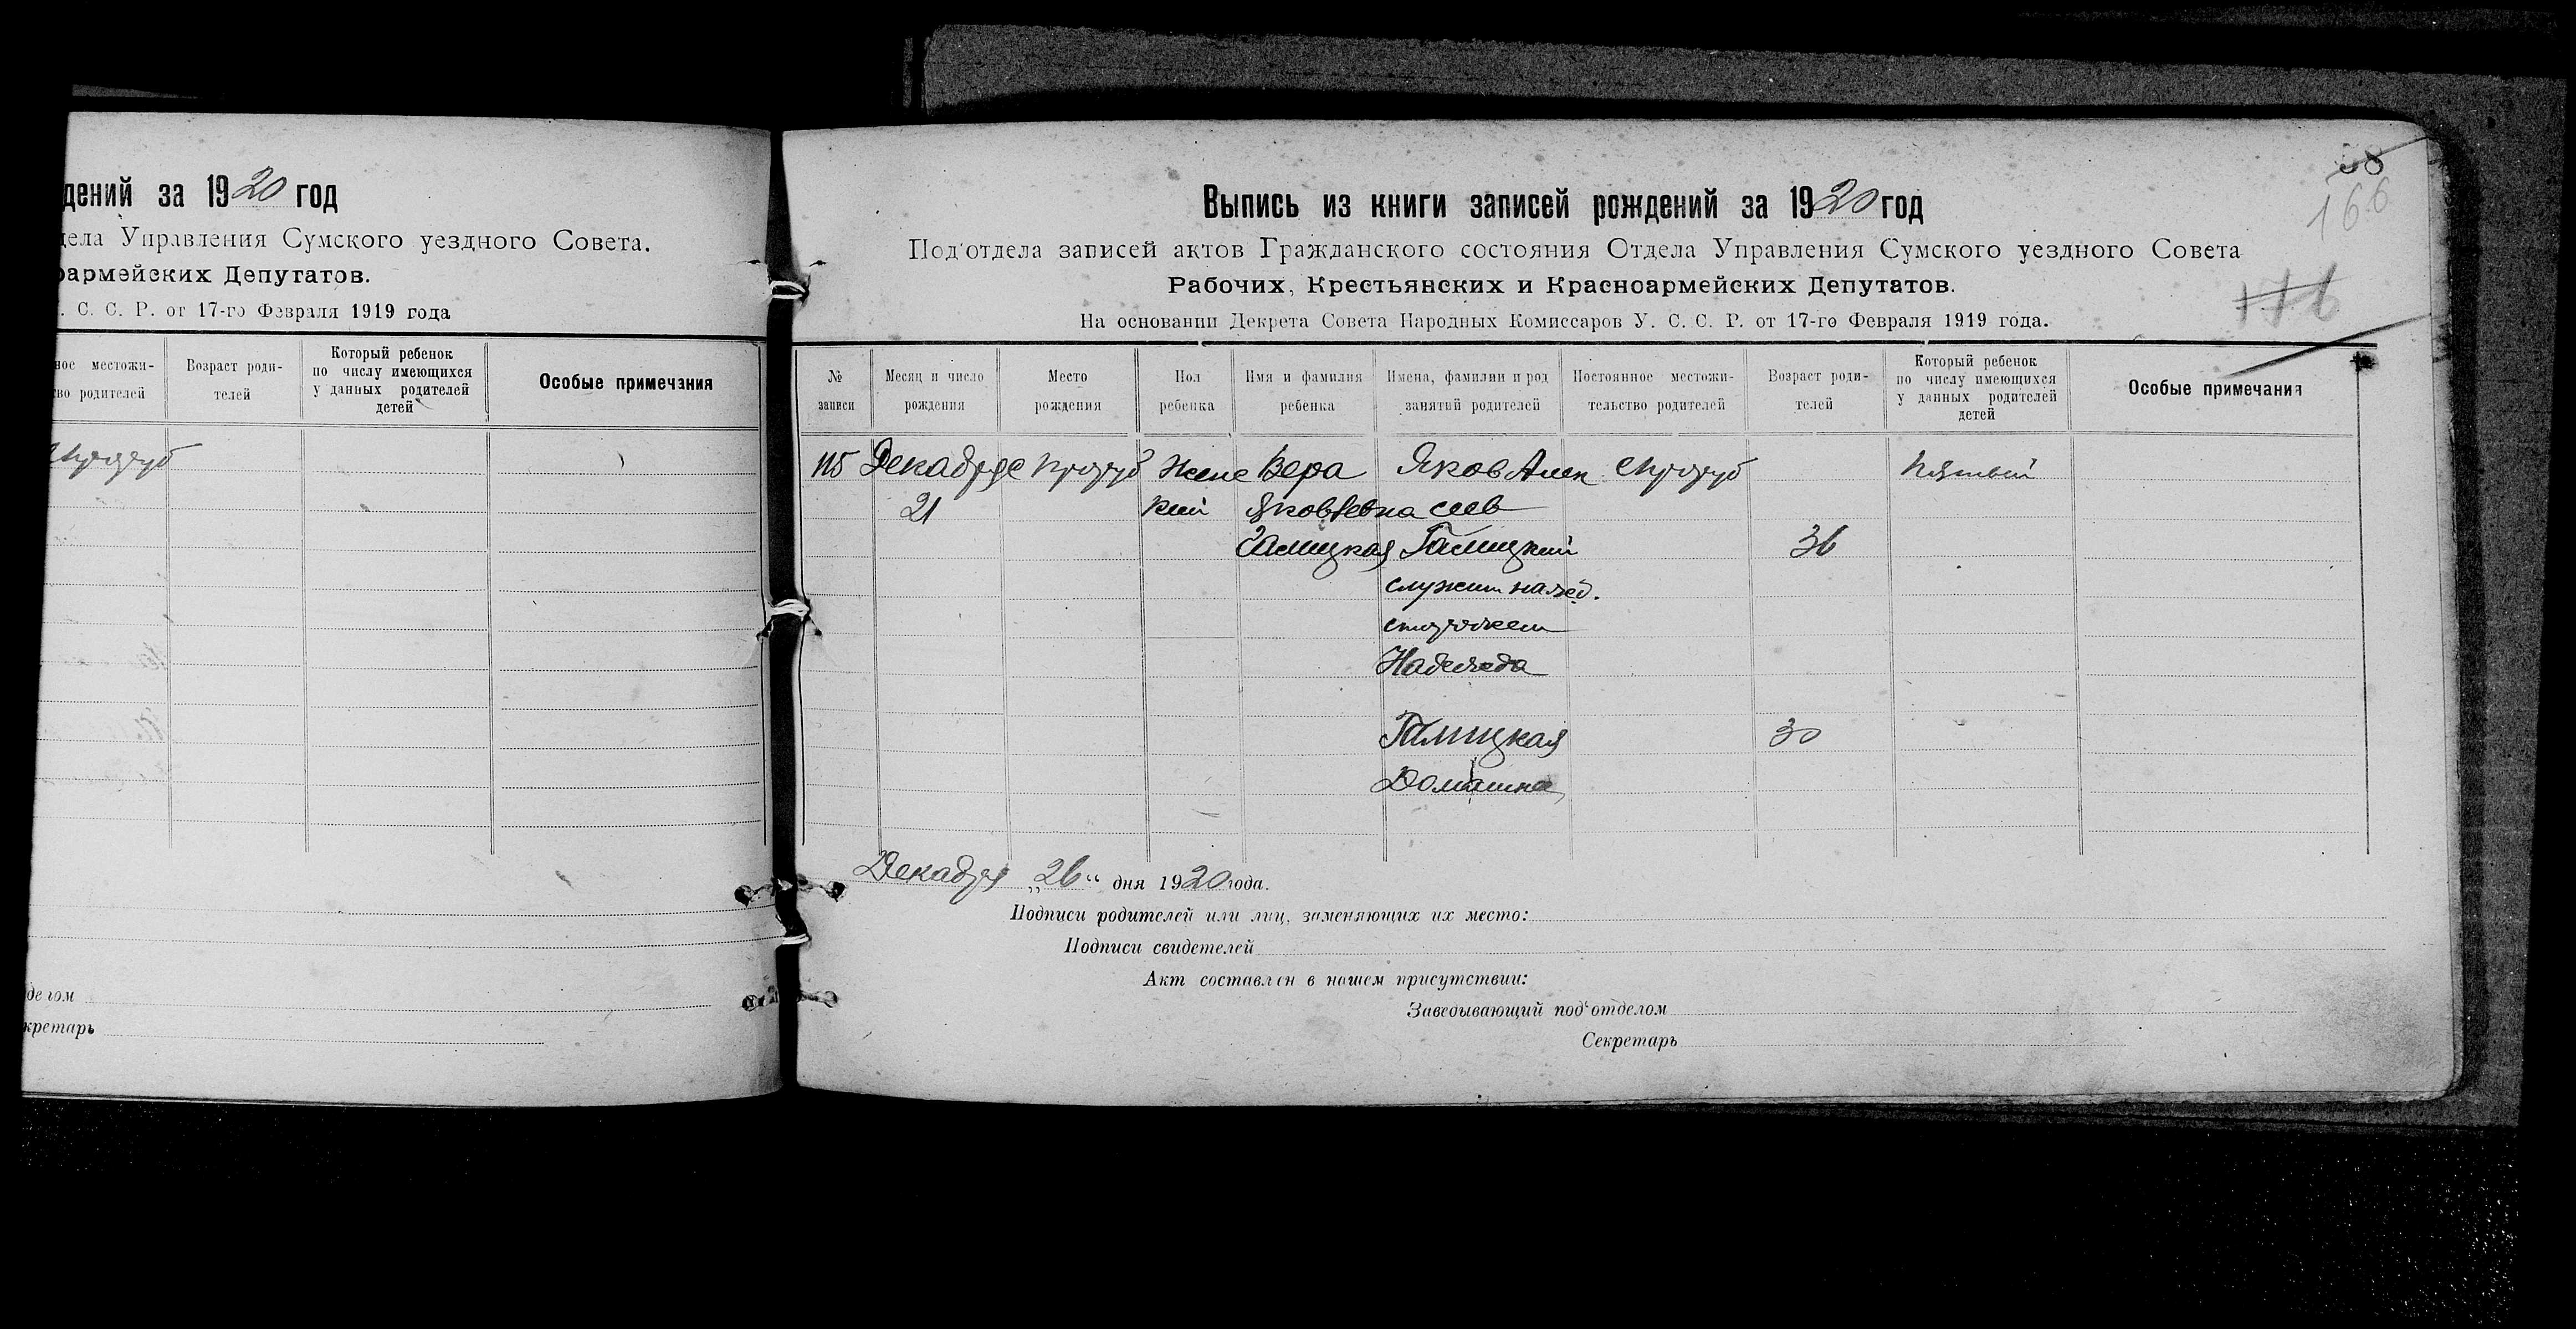 дений за 1920 год
дела Управления Сумского уездного Совета.
оармейских Депутатов.
. С. С. Р. от 17-го Февраля 1919 года
ное местожи-
во родителей
Возраст роди-
телей
Который ребенок
по числу имеющихся
у данных родителей
детей
Особые примечания
делом
кретарь
58
166
116
Выпись из книги записей рождений за 1920 год
Под'отдела записей актов Гражданского состояния Отдела Управления Сумского уездного Совета
Рабочих, Крестьянских и Красноармейских Депутатов.
На основании Декрета Совета Народных Комиссаров У. С. С. Р. от 17-го Февраля 1919 года.
№
записи
Месяц и число
рождения
Место
рождения
Пол
ребенка
Имя и фамилия
ребенка
Имена, фамилии и род
занятий родителей
Постоянное местожи-
тельство родителей
Возраст роди-
телей
Который ребенок
по числу имеющихся
у данных родителей
детей
Особые примечания
115
Декабря
21
Женс
кий
Вера
Яковлевна
Галицкая
Яков Алек
сеев
Галицкий
служит
Надежда
Галицкая
Домашне
36
30
пятый
Декабря „26“ дня 1920 года.
Подписи родителей или лиц, заменяющих их место:
Подписи свидетелей
Акт составлен в нашем присутствии:
Заведывающий под'отделом
Секретарь